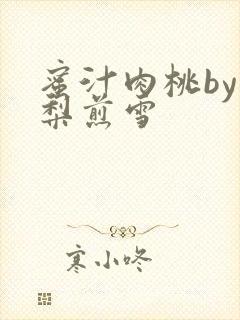 蜜汁肉桃by
梨煎雪
寒小咚